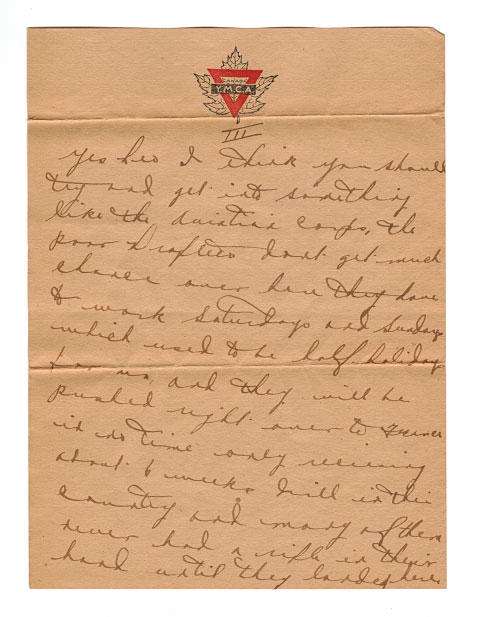 CANADA
Y.M.C.A.
III
Yes Leo I think you should
try and get into something
like the aviation corps, the
poor Draftees dont get much
chance over here they have
to work Saturdays and Sundays
which used to be half holiday
for us, and they will be
pushed right over to France
in no time only receiving
about 6 weeks drill in this
country and many of them
never had a rifle in their
hand until they landed here.